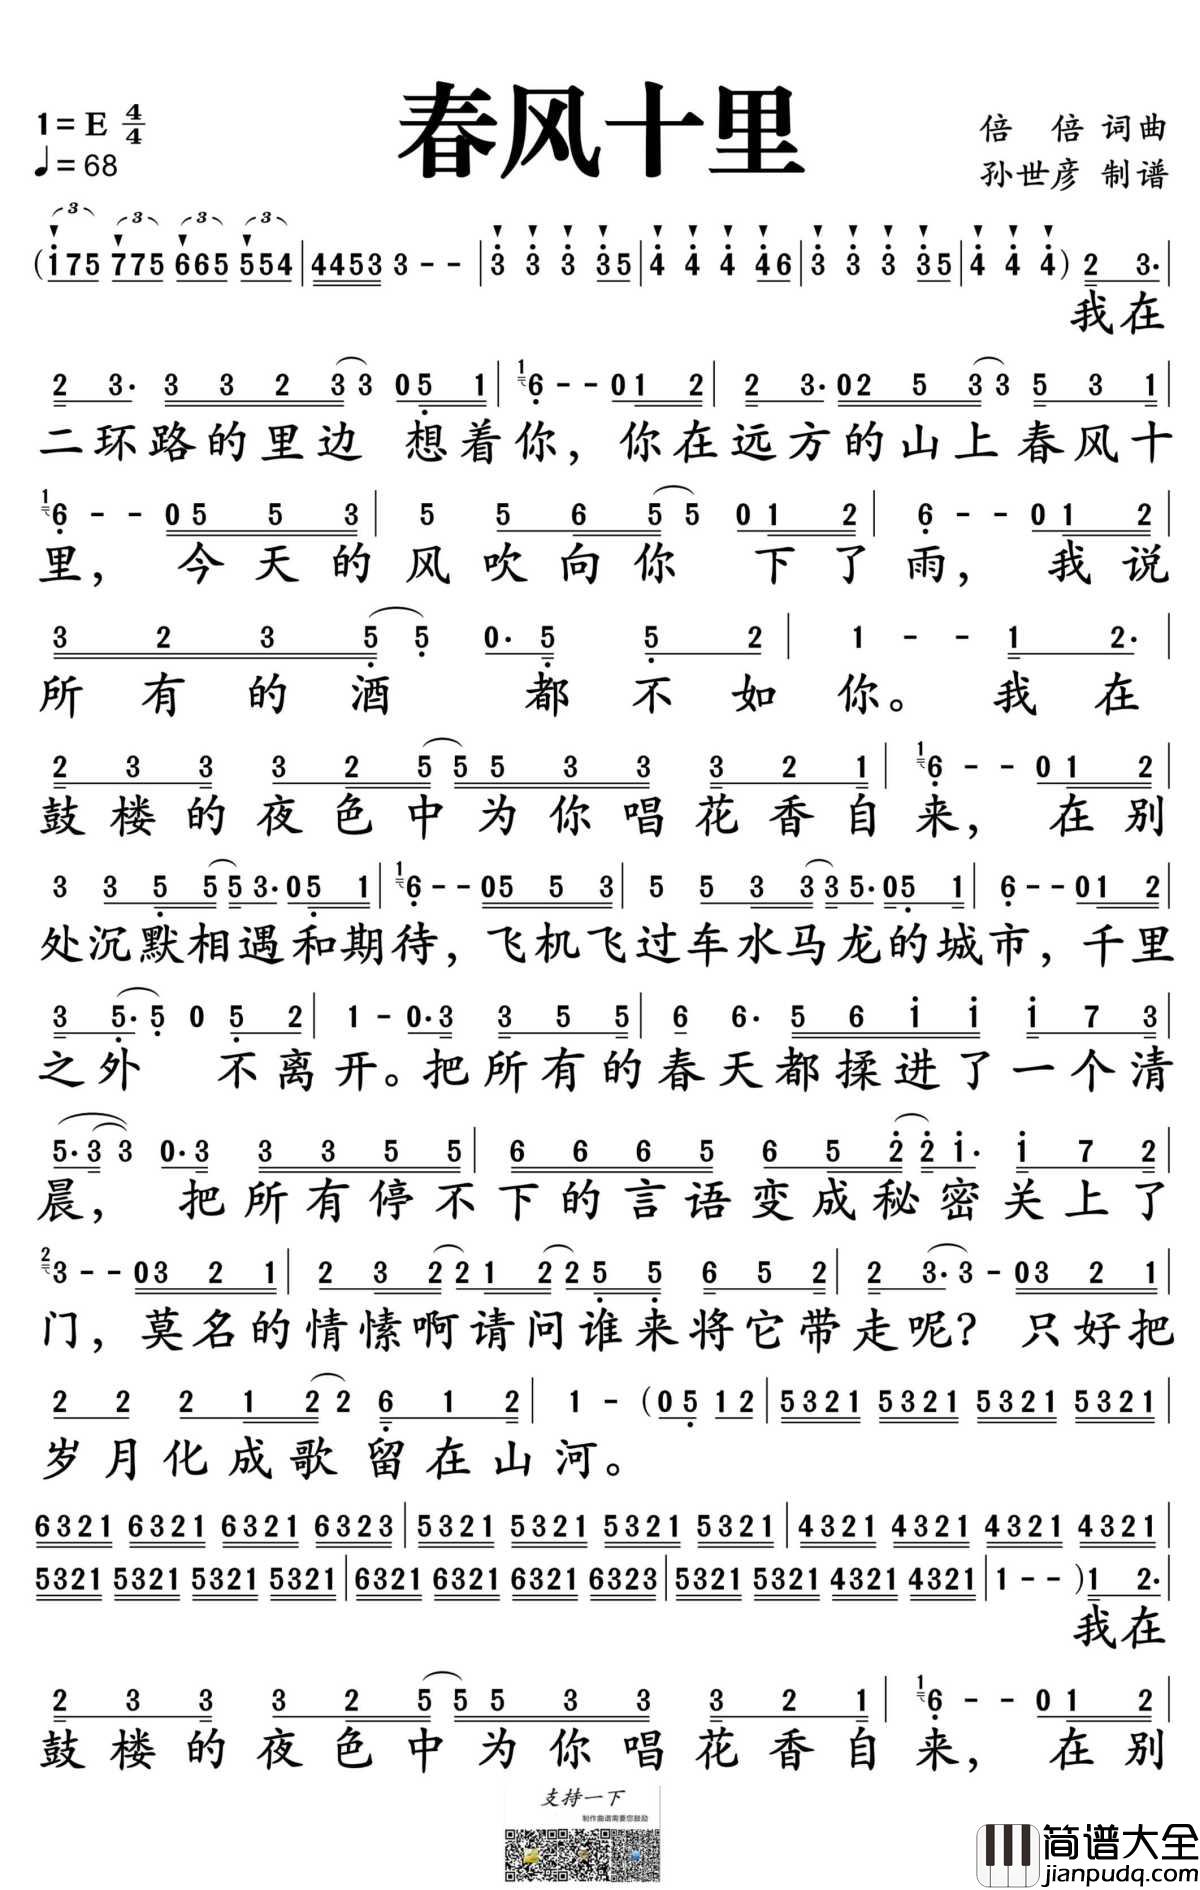 春风十里
1=E 4/4
♩=68
倍 倍 词曲
孙世彦 制谱
3 3 3 3
( i75 775 665 554 | 4453 3 - - | 3 3 3 35 | 4 4 4 46 | 3 3 3 35 | 4 4 4 ) 2 3. |
我在
2 3. 3 3 2 3 3 05 1 | 1 6 - - 01 2 | 2 3. 02 5 3 3 5 3 1 |
二环路的里边 想着你，你在远方的山上春风十
1 6 - - 05 5 3 | 5 5 6 5 5 01 2 | 6 - - 01 2 |
里， 今天的风吹向你 下了雨， 我说
3 2 3 5 5 0. 5 5 2 | 1 - - 1 2. |
所有的酒 都不如你。 我在
2 3 3 3 2 5 5 5 3 3 3 2 1 | 1 6 - - 01 2 |
鼓楼的夜色中为你唱花香自来， 在别
3 3 5 5 5 3. 05 1 | 1 6 - - 05 5 3 | 5 5 3 3 3 5. 05 1 | 6 - - 01 2 |
处沉默相遇和期待，飞机飞过车水马龙的城市，千里
3 5. 5 0 5 2 | 1 - 0. 3 3 5 5 | 6 6. 5 6 i i i 7 3 |
之外 不离开。把所有的春天都揉进了一个清
5. 3 3 0. 3 3 3 5 5 | 6 6 6 5 6 5 2 2 i. i 7 2 |
晨， 把所有停不下的言语变成秘密关上了
2 3 - - 03 2 1 | 2 3 2 2 1 2 2 5 5 6 5 2 | 2 3. 3 - 03 2 1 |
门，莫名的情愫啊请问谁来将它带走呢？ 只好把
2 2 2 1 2 2 6 1 2 | 1 - ( 05 12 | 5321 5321 5321 5321 |
岁月化成歌留在山河。
6321 6321 6321 6323 | 5321 5321 5321 5321 | 4321 4321 4321 4321 |
5321 5321 5321 5321 | 6321 6321 6321 6323 | 5321 5321 4321 4321 | 1 - - ) 1 2. |
我在
2 3 3 3 2 5 5 5 3 3 3 2 1 | 1 6 - - 01 2 |
鼓楼的夜色中为你唱花香自来， 在别
支持一下
制作曲谱需要您鼓励
简谱大全
jianpudq.com